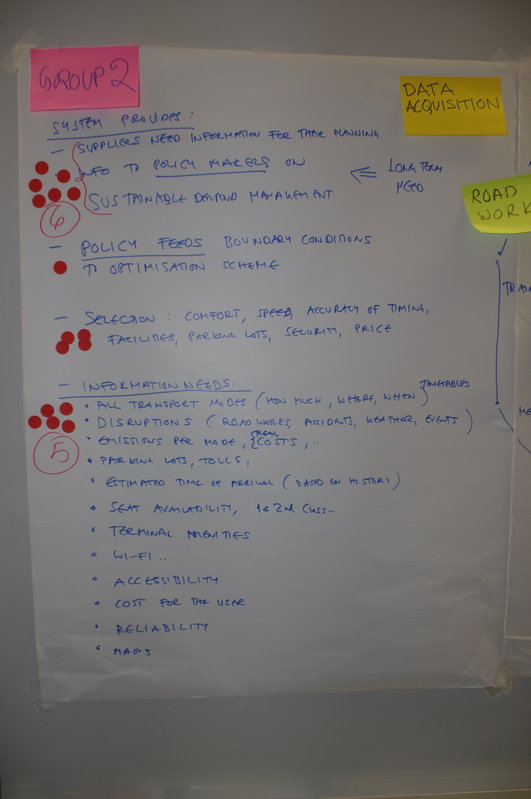 GROUP 2
DATA
ACQUISITION
SYSTEM PROVIDES:
- SUPPLIERS NEED INFORMATION FOR THEIR PLANNING
INFO TO POLICY MAKERS ON
SUSTAINABLE DEMAND MANAGEMENT
⇐ LONG TERM
NEED
6
ROAD
WORK
- POLICY FEEDS BOUNDARY CONDITIONS
TO OPTIMISATION SCHEME
- SELECTION: COMFORT, SPEED, ACCURACY OF TIMING,
FACILITIES, PARKING LOTS, SECURITY, PRICE
- INFORMATION NEEDS:
• ALL TRANSPORT MODES (HOW MUCH, WHERE, WHEN) TIMETABLES
• DISRUPTIONS (ROAD WORKS, ACCIDENTS, WEATHER, EVENTS)
• EMISSIONS PER MODE, {REAL COSTS, ..
5
• PARKING LOTS, TOLLS,
• ESTIMATED TIME OF ARRIVAL (BASED ON HISTORY)
• SEAT AVAILABILITY, 1 & 2nd CLASS...
• TERMINAL AMENITIES
• WI-FI ...
• ACCESSIBILITY
• COST FOR THE USER
• RELIABILITY
• MAPS